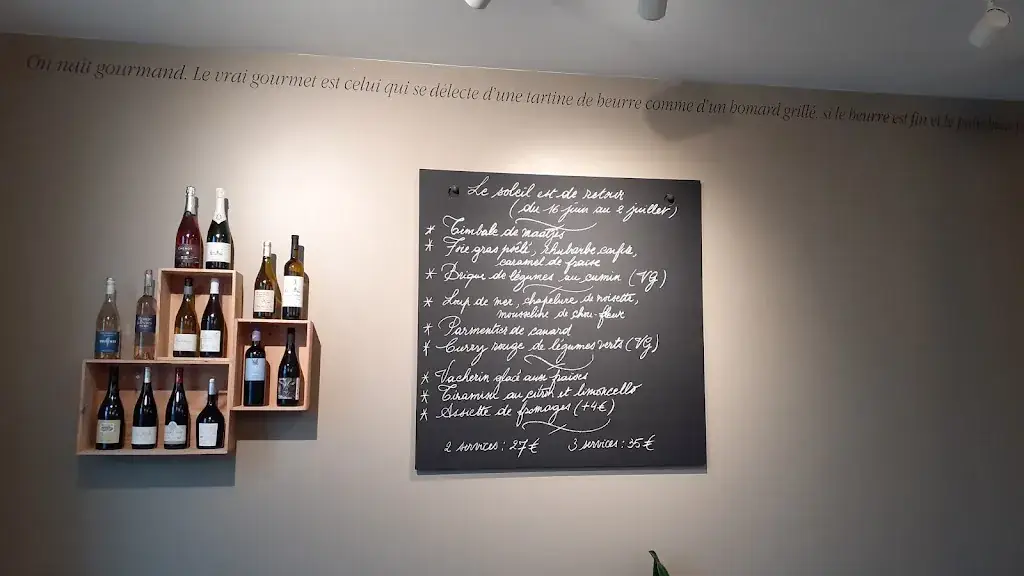 On naît gourmand. Le vrai gourmet est celui qui se délecte d'une tartine de beurre comme d'un homard grillé, si le beurre est fin et le
Le soleil est de retour
(du 16 juin au 2 juillet)
* Timbale de maatjes
* Foie gras poêlé, rhubarbe confite,
caramel de fraise
* Brique de légumes au cumin (VG)
* Loup de mer, chapelure de noisette,
mousseline de chou-fleur
* Parmentier de canard
* Curry rouge de légumes verts (VG)
* Vacherin glacé aux fraises
* Tiramisu au citron et limoncello
* Assiette de fromages (+4€)
2 services : 27€ 3 services : 35€